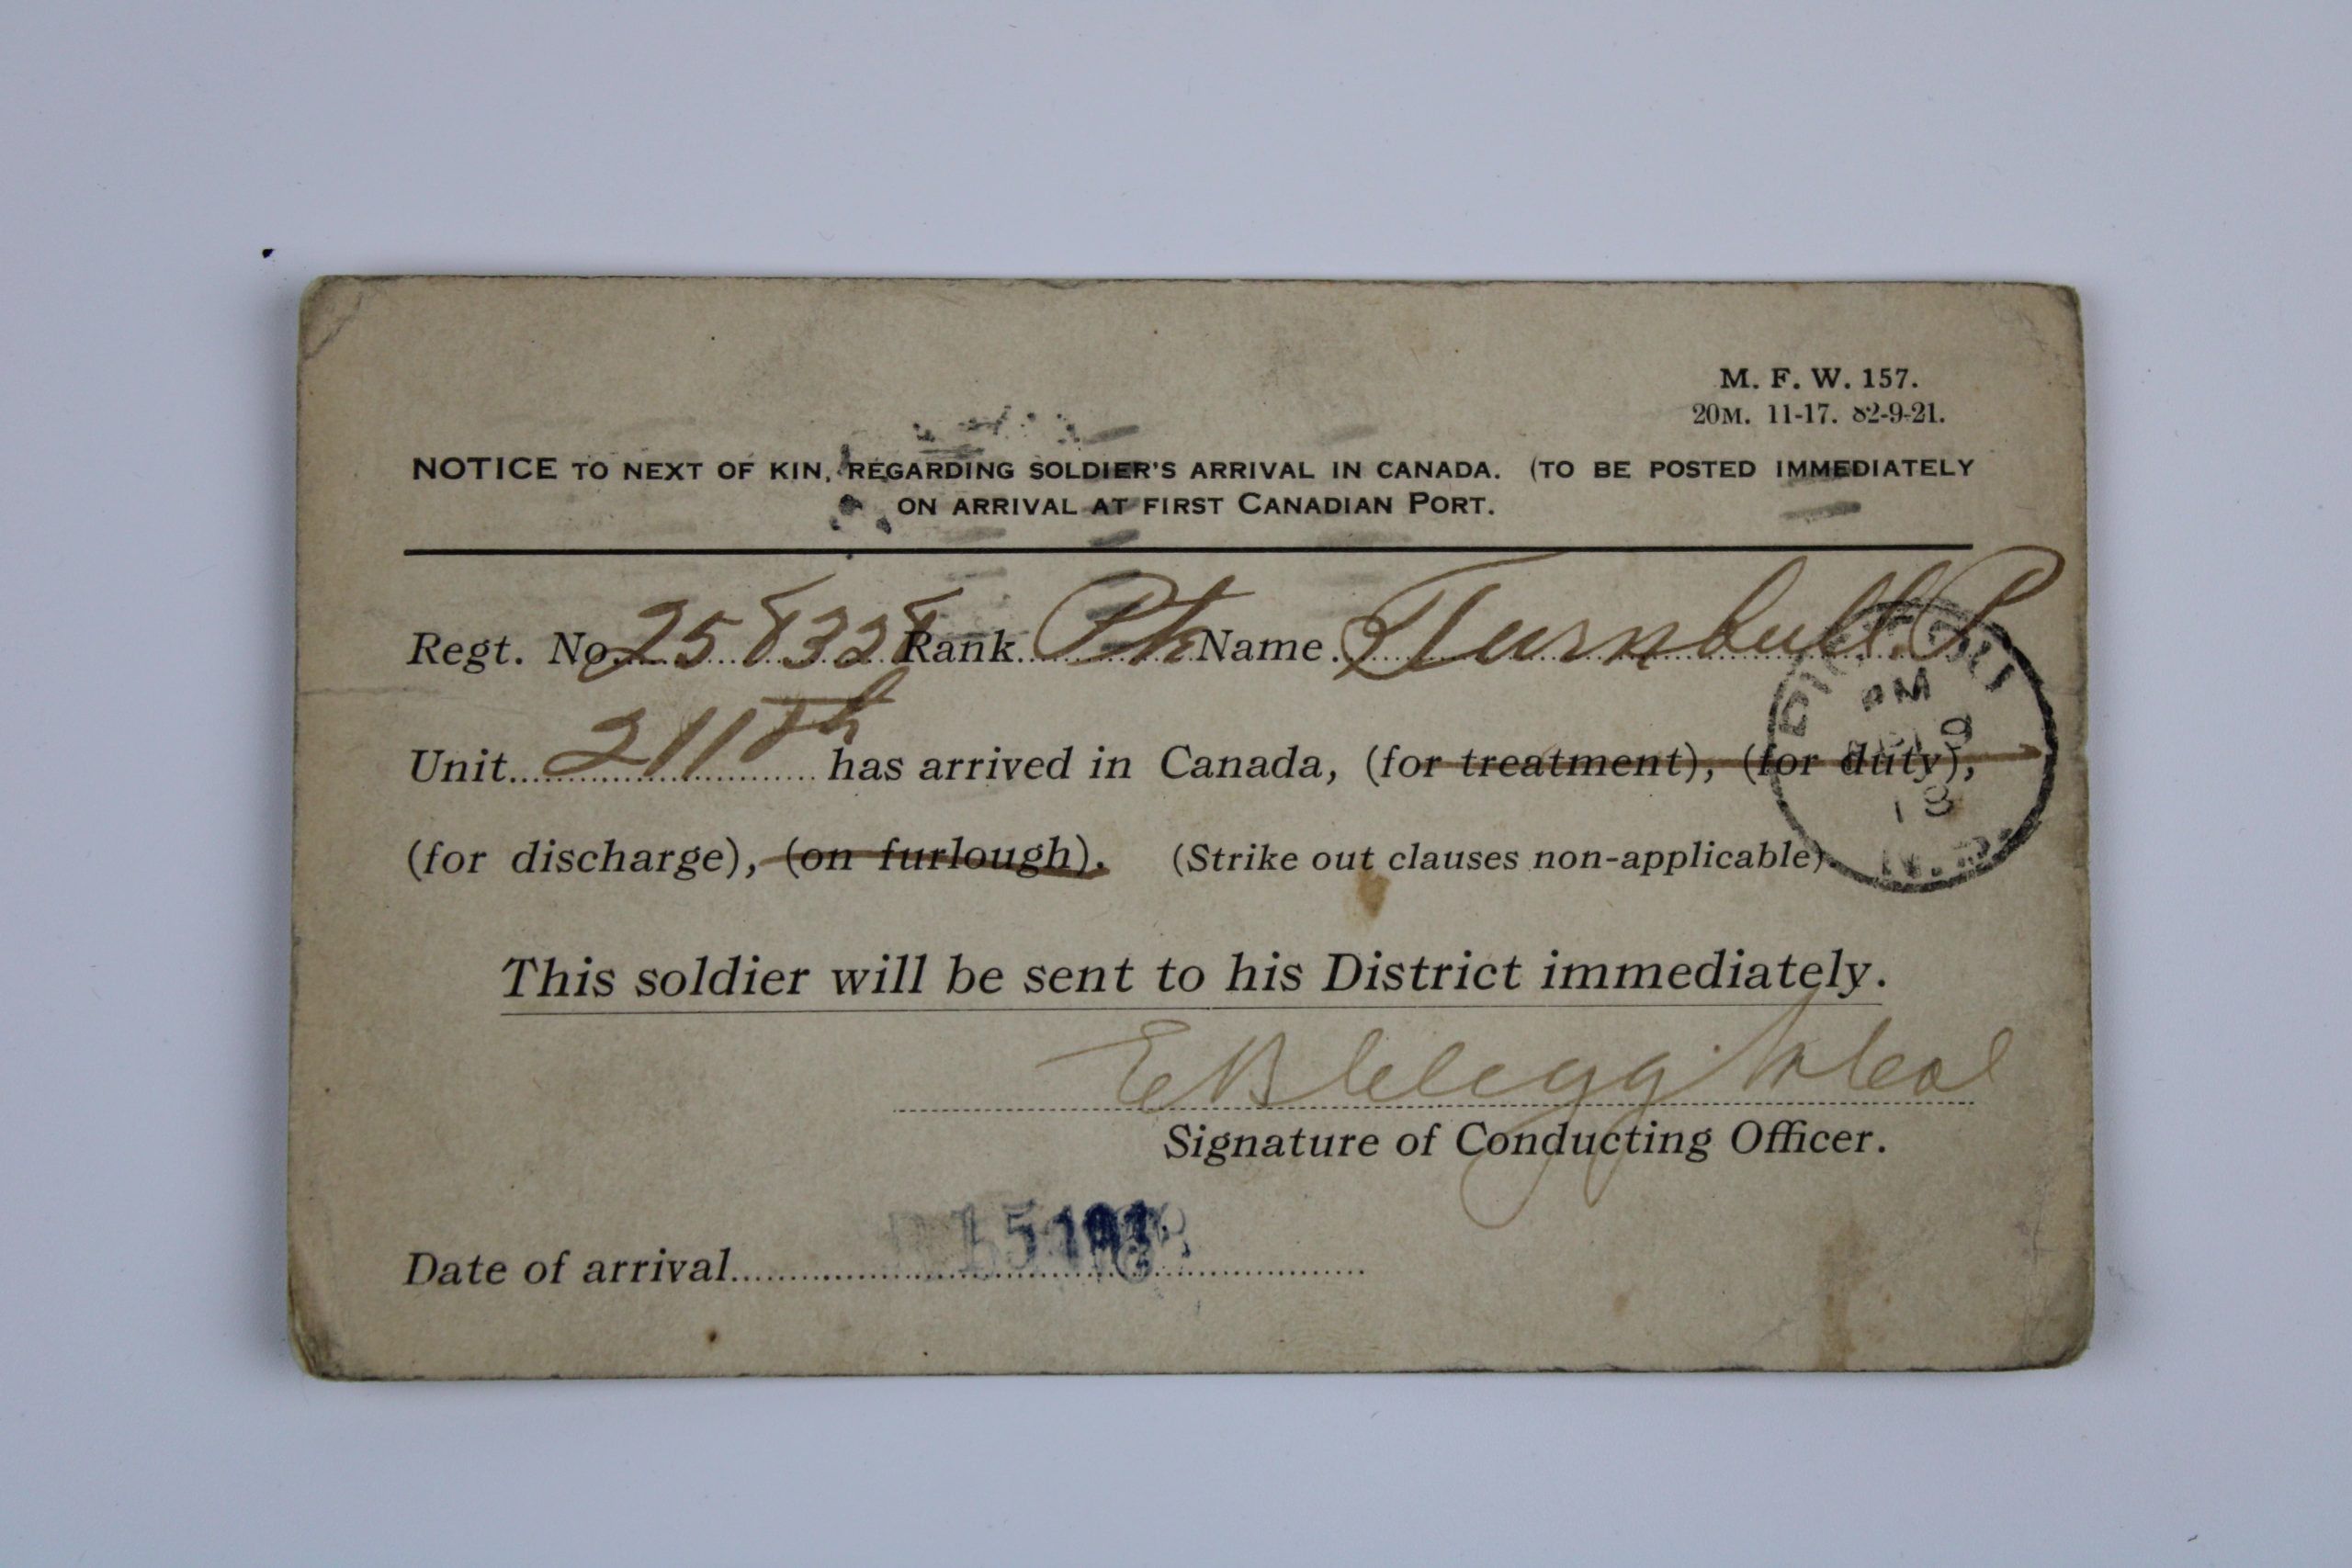 M. F. W. 157.
20M. 11-17. 82-9-21.
NOTICE TO NEXT OF KIN, REGARDING SOLDIER'S ARRIVAL IN CANADA. (TO BE POSTED IMMEDIATELY
ON ARRIVAL AT FIRST CANADIAN PORT.
Regt. No. 258328 Rank Pte Name Turnbull P
Unit 211th has arrived in Canada, (for treatment), (for duty),
(for discharge), (on furlough). (Strike out clauses non-applicable)
This soldier will be sent to his District immediately.
E B Clegg
Signature of Conducting Officer.
Date of arrival
PM
18